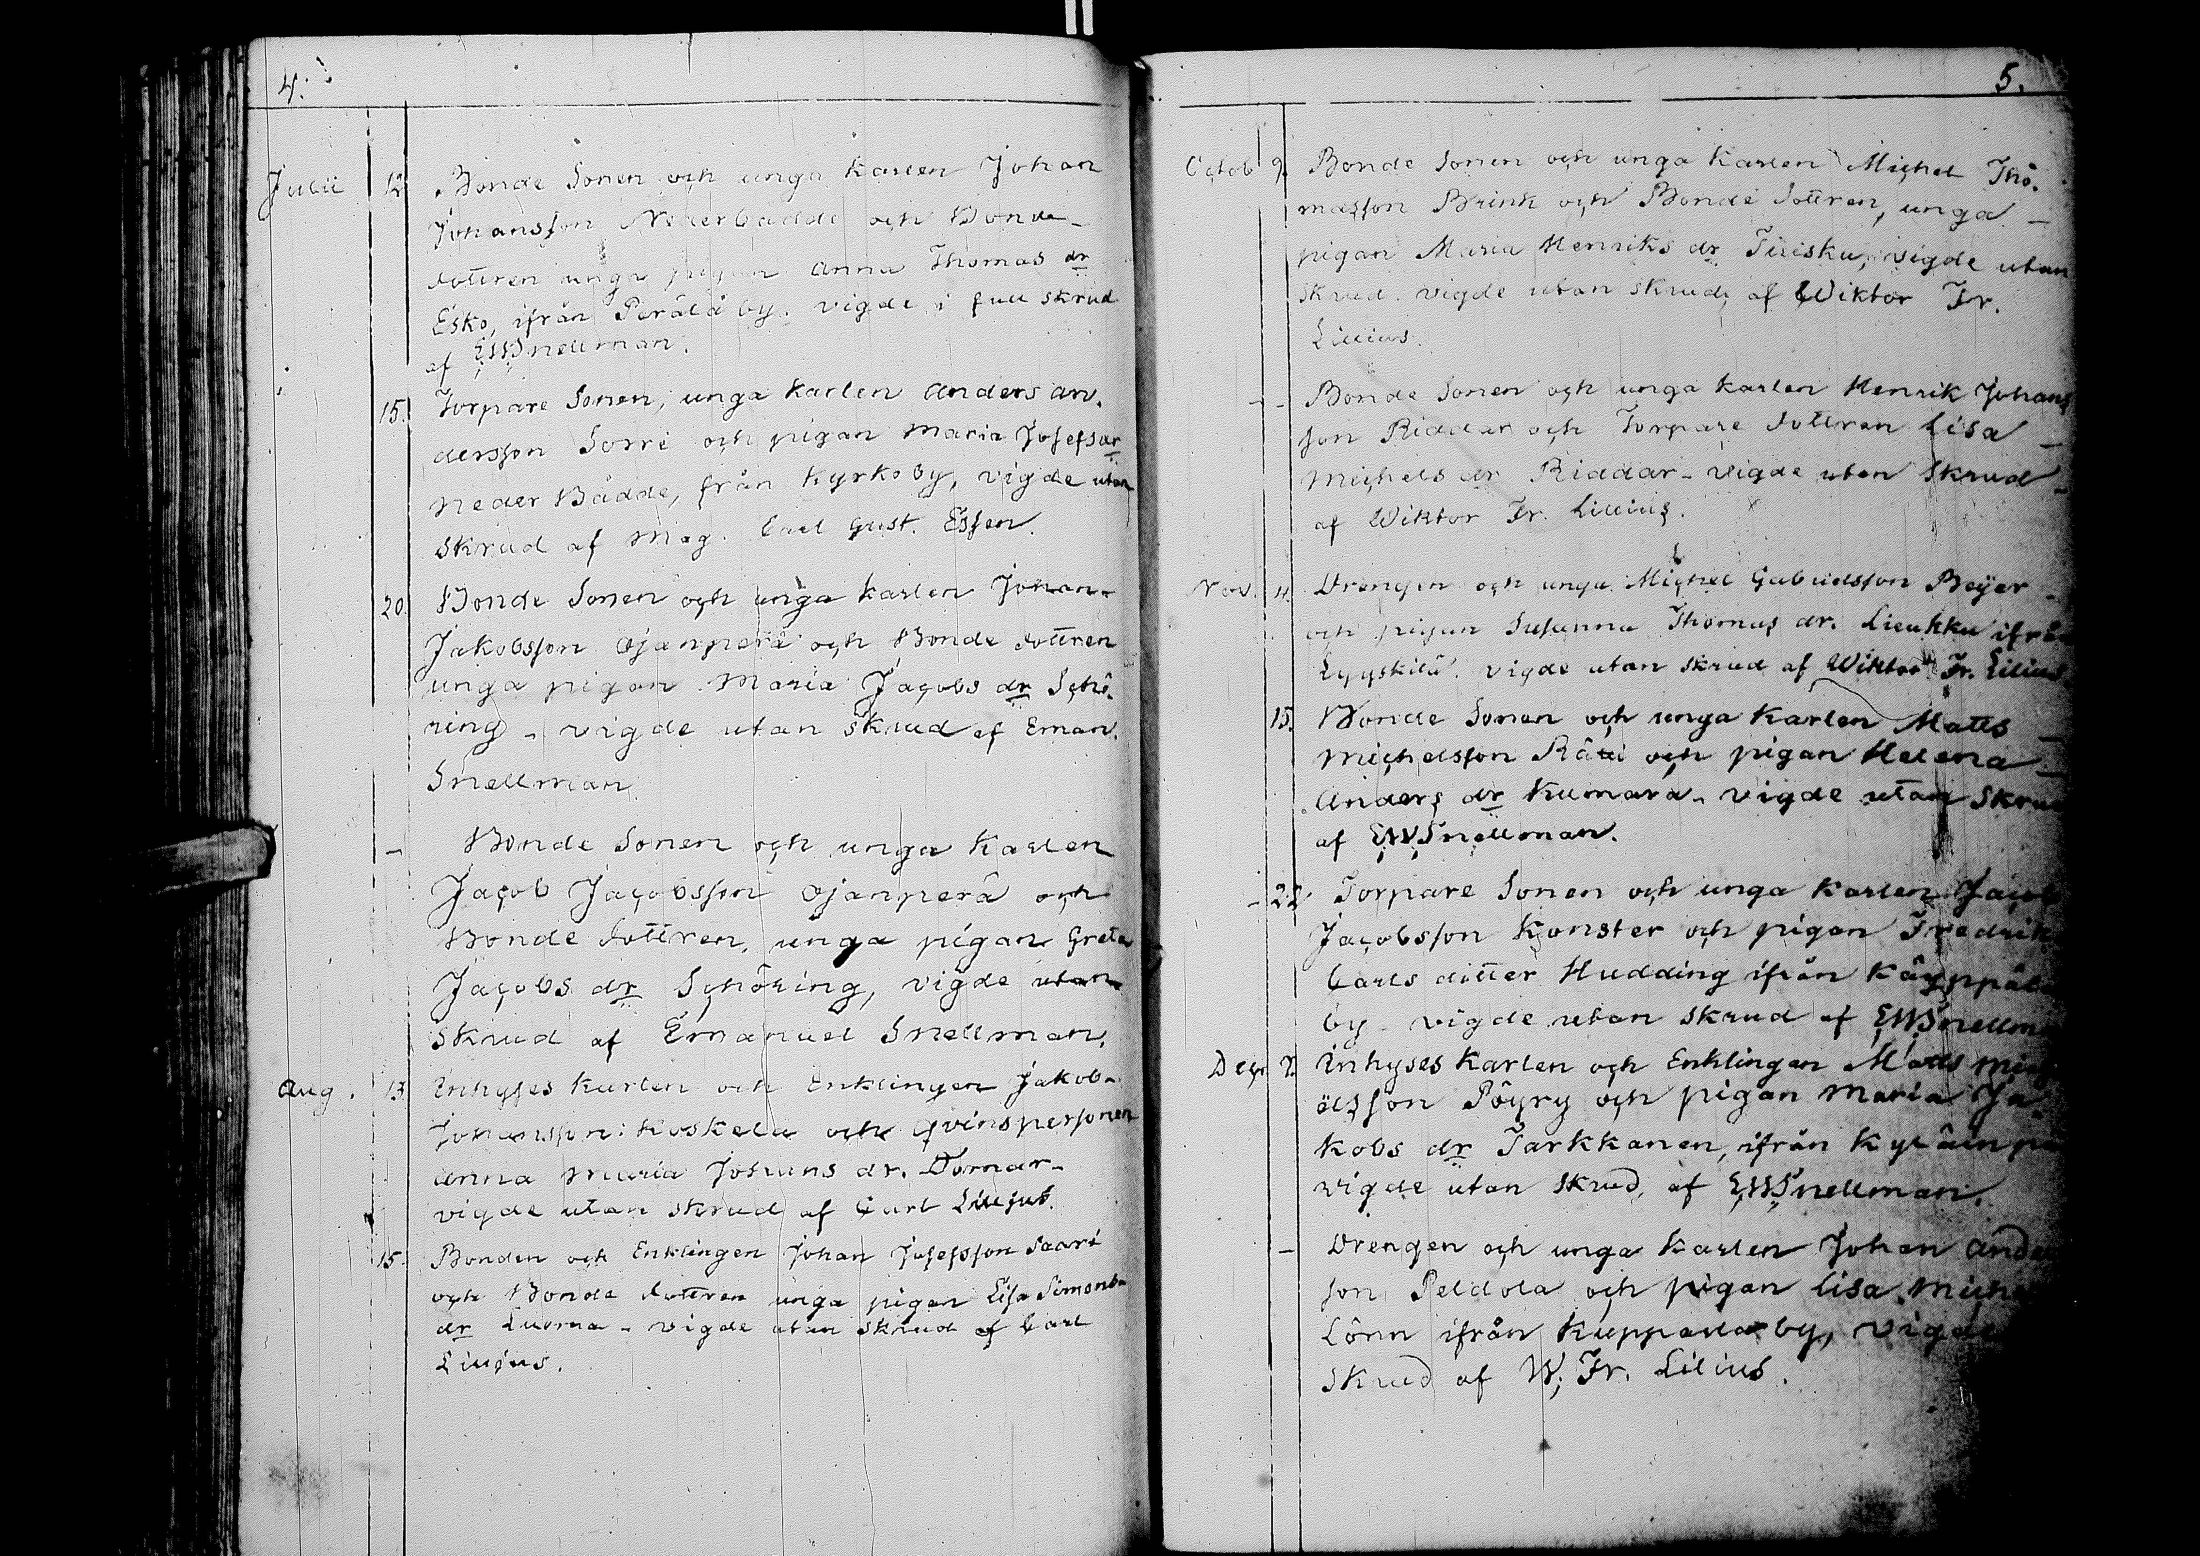 4.
Julii 12 Bonde Sonen och unga Karlen Johan
Johansson Nederbådde och Bonde
dottren unga pigan Anna Thomas dr
Esko, ifrån Perälä by. vigde i full skrud
af EWSnellman.
15. Torpare Sonen, unga Karlen Anders An-
dersson Sorri och pigan Maria Josefs dr
Neder Bådde, från Kyrkoby, vigde utan
skrud af Mag. Carl Gust. Essen.
20. Bonde Sonen och unga Karlen Johan
Jakobsson Ojanperä och Bonde dottren
unga pigan Maria Jacobs dr Schö-
ring - vigde utan skrud af Eman.
Snellman.
– Bonde Sonen och unga Karlen
Jacob Jacobsson Ojanperä och
Bonde dottren, unga pigan Greta
Jacobs dr Schöring, vigde utan
skrud af Emanuel Snellman.
Aug. 13 Inhyses Karlen och Enklingen Jakob
Johansson Koskela och Qvinspersonen
Anna Maria Johans dr. Domar-
vigde utan skrud af Carl Liljus.
15. Bonden och Enklingen Johan Josefsson Saari
och Bonde dottren unga pigan Lisa Simons
dr Luoma - vigde utan skrud af Carl
Liujus.
5.
Octob 9. Bonde Sonen och unga Karlen Michel Tho-
masson Brink och Bonde dottren, unga
pigan Maria Henriks dr Tiisku, vigde utan
skrud. vigde utan skrud, af Wiktor Fr.
Lilius.
– Bonde Sonen och unga Karlen Henrik Johans
son Riddar och Torpare dottren Lisa
Michels dr Riddar - vigde utan skrud
af Wiktor Fr. Lilius.
Nov. 11. Drengen och unga Michel Gabrielsson Beijer
och pigan Susanna Thomas dr. Lieukku ifrån
Lyyskilä. vigde utan skrud af Wiktor Fr. Lilius
15. Bonde Sonen och unga Karlen Matts
Michelsson Räti och pigan Helena
Anders dr Kumara - vigde utan skru
af EWSnellman.
- 22. Torpare Sonen och unga Karlen Jacob
Jacobsson Konster och pigan Fredrik
Carls dotter Hudding ifrån Käyppälä
by - vigde utan skrud af EWSnellm
Decr. 7. Inhyses Karlen och Enklingen Matts Mich
aelsson Pöyry och pigan Maria Ja-
kobs dr Tarkkanen, ifrån Kyläinpä
vigde utan skrud, af EWSnellman.
– Drengen och unga Karlen Johan Anders
son Peldola och pigan Lisa Michels
Lönn ifrån Kuppala by, vigde
skrud af W. Fr. Lilius.